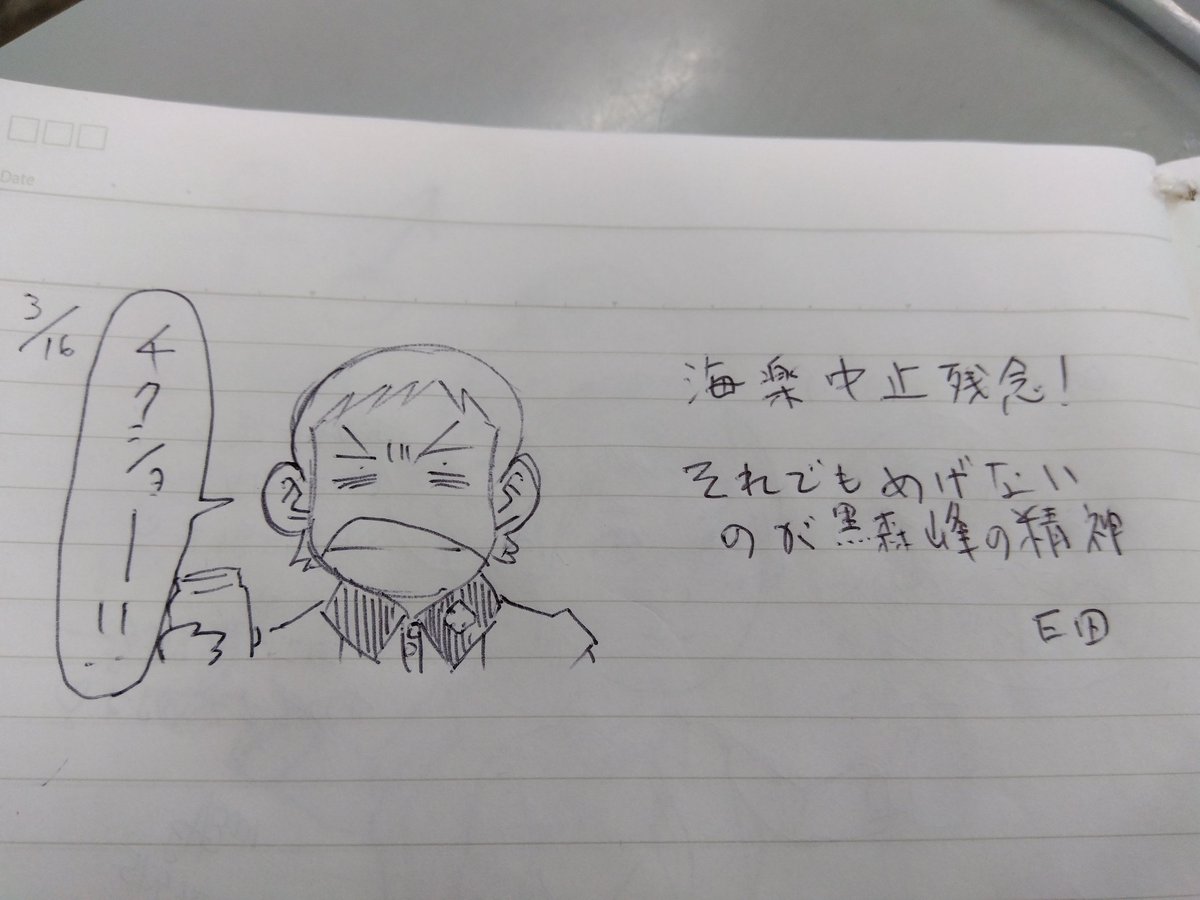 Date
3/16
チクショー!!
海楽中止残念!
それでもめげない
のが黒森峰の精神
E田